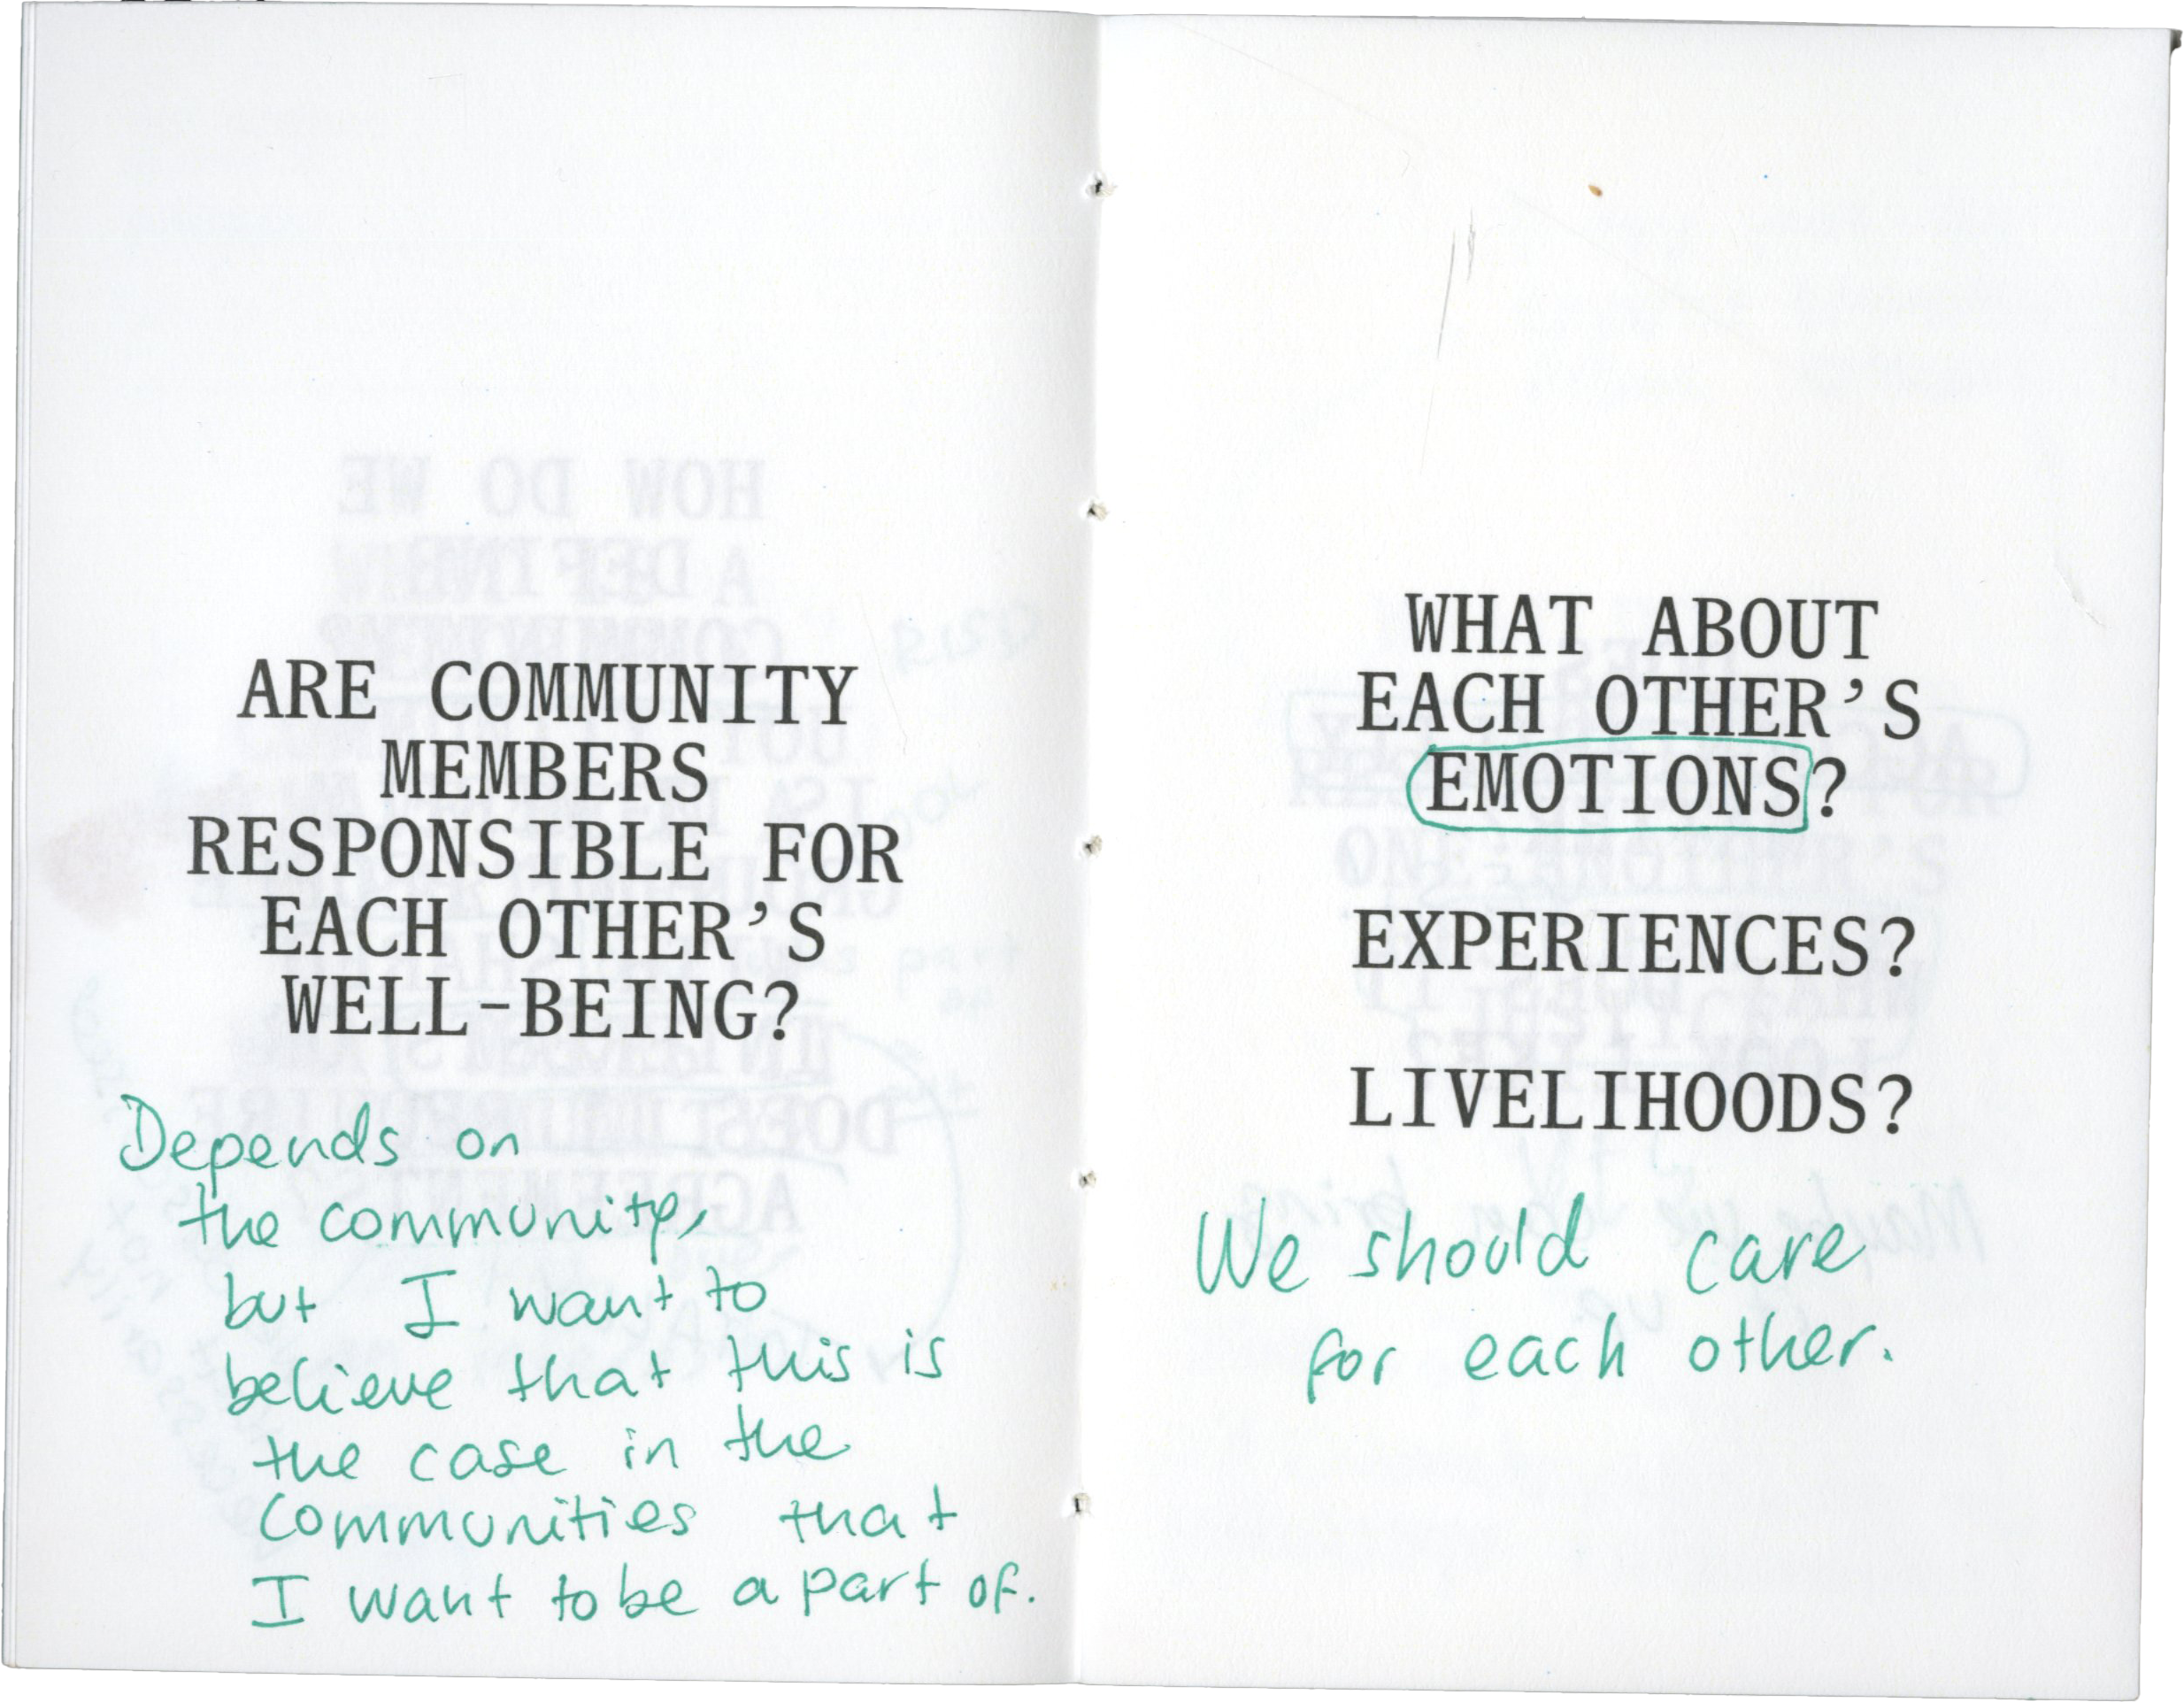 ARE COMMUNITY
MEMBERS
RESPONSIBLE FOR
EACH OTHER'S
WELL-BEING?
Depends on
the community,
but I want to
believe that this is
the case in the
communities that
I want to be a part of.
WHAT ABOUT
EACH OTHER'S
EMOTIONS?
EXPERIENCES?
LIVELIHOODS?
We should care
for each other.